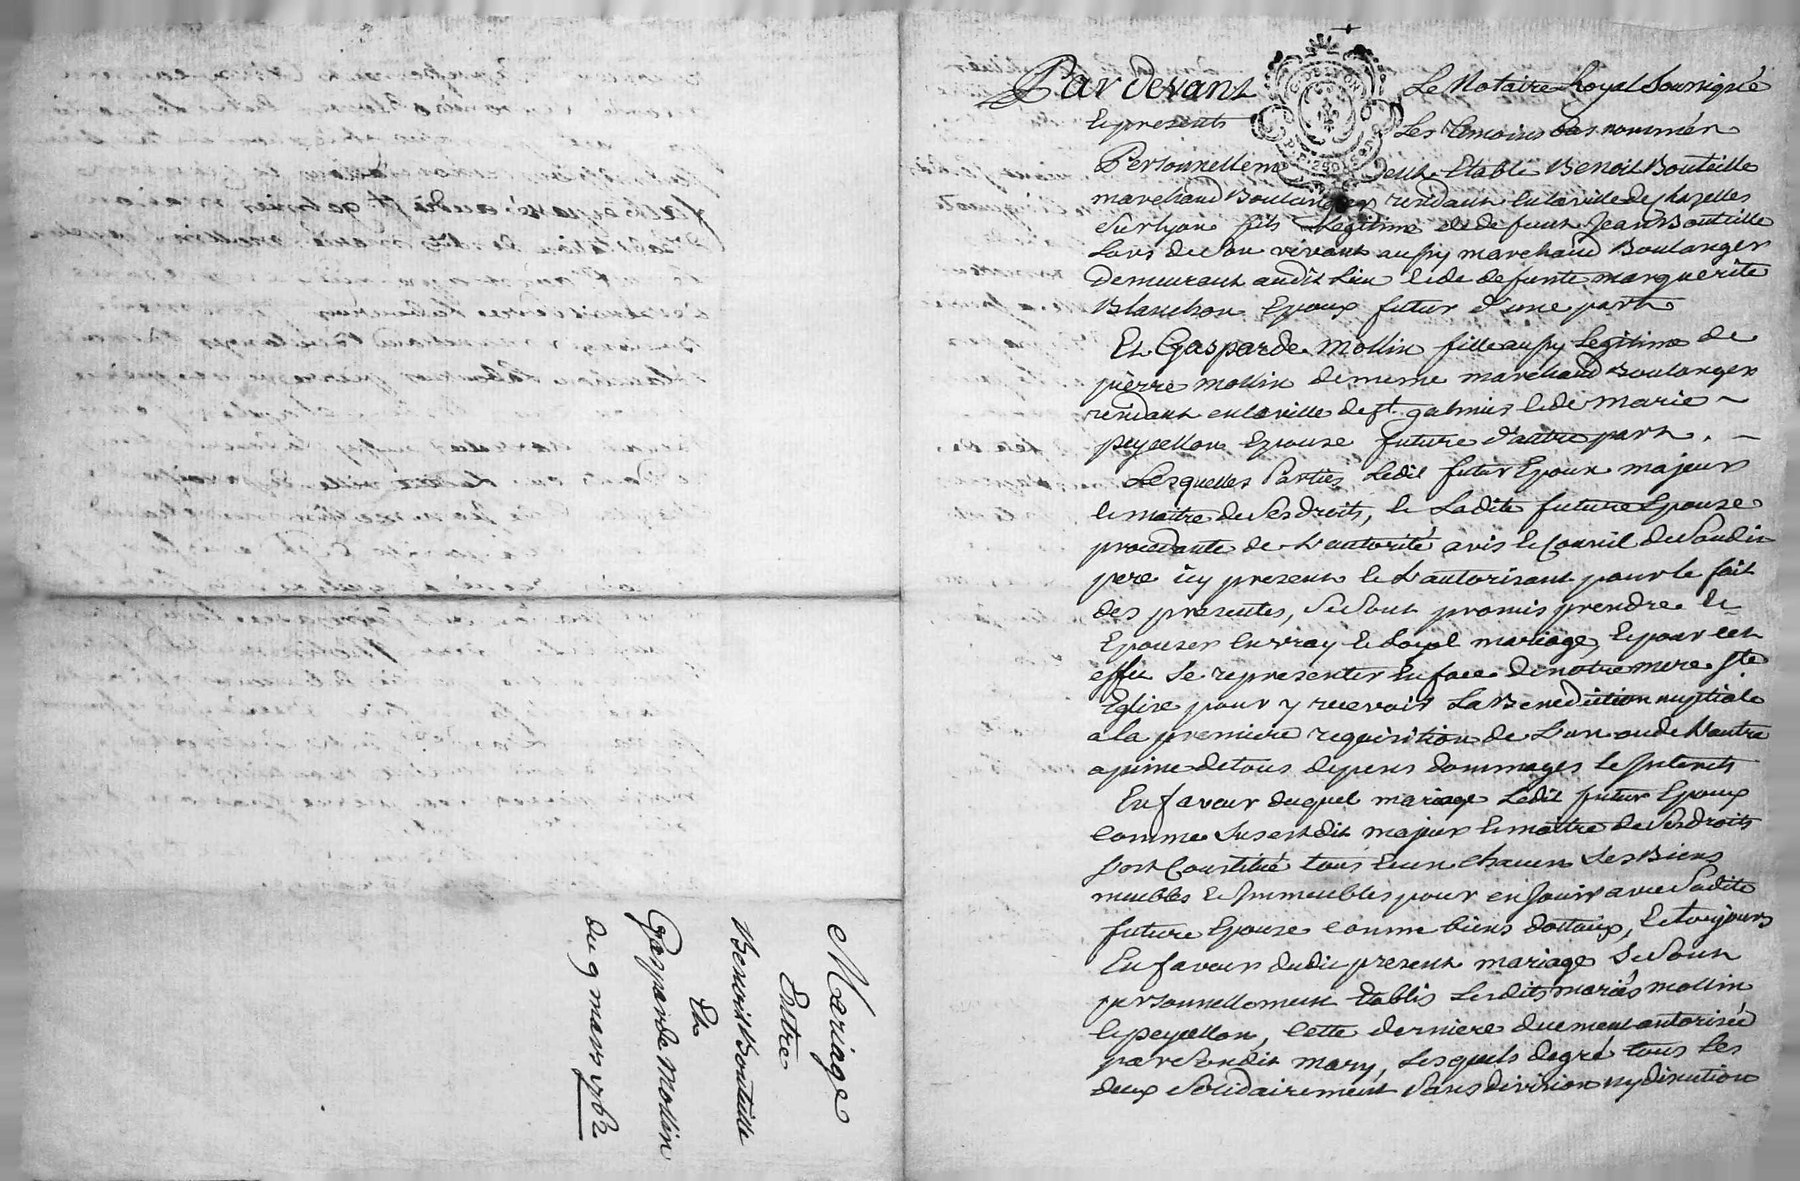 Mariage
Entre
Benoit Bouteille
Et
Gasparde Mollin
du 9 mars 1762
Par devant Le Notaire Royal Soussigné
et presents Les temoins bas nommés
Personnellement Etabli Benoit Bouteille
marchand Boulanger rendant en la ville de chazelles
sur lyon fils Legitime de defunt Jean Bouteille
Lors de son vivant aussy marchand Boulanger
Demeurant audit Lieu et de defunte marguerite
Blanchon Epoux futur d'une part
Et Gasparde Mollin fille aussy Legitime de
pierre mollin de meme marchand Boulanger
rendant en la ville de st. galmier et de Marie ~
peyzellon Epouse future d'autre part. ~
Lesquelles Parties Ledit futur Epoux majeur
et maitre de ses droits, et Ladite future Epouse
procedante de L'autorité avis et Conseil de Son dit
pere icy present et L'autorisant pour le fait
des presentes, se sont promis prendre et
Epouser en vray et Loyal mariage, et pour cet
effet se representer en face de notre mere ste
Eglise pour y recevoir La Benediction nuptiale
a la premiere requisition de L'un ou de L'autre
a peine de tous depens dommages et Interets
En faveur duquel mariage Ledit futur Epoux
comme susest dit majeur et maitre de ses droits
sest Constitué tous et un chacun ses Biens
meubles et Immeubles pour en Jouir avec Ladite
future Epouse comme biens dottaux, et toujours
En faveur dudit present mariage se sont
personnellement Etablis Lesdits mariés mollin
et peyzellon, cette derniere duement autorisée
par sondit mary, Lesquels de gré tous les
deux solidairement sans division ny discution